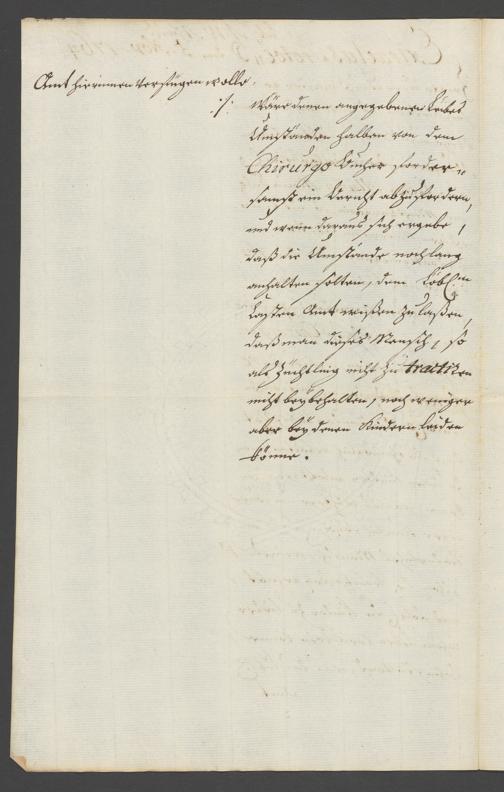 Amt hierinnen verfügen wolle.
:/:
wäre denen angegebenen Leibes
Umständen halben von dem
Chirurgo Bucher forder-
samst ein Bericht abzufordern,
und wenn daraus sich ergebe,
daß die Umstände noch lang
anhalten solten, dem Löbl.en
Kasten Amt wißen zu laßen,
daß man dieses Mensch, so
als Züchtling nicht zu tractiren
nicht beybehalten, noch weniger
aber bey denen Kindern leiden
könne.